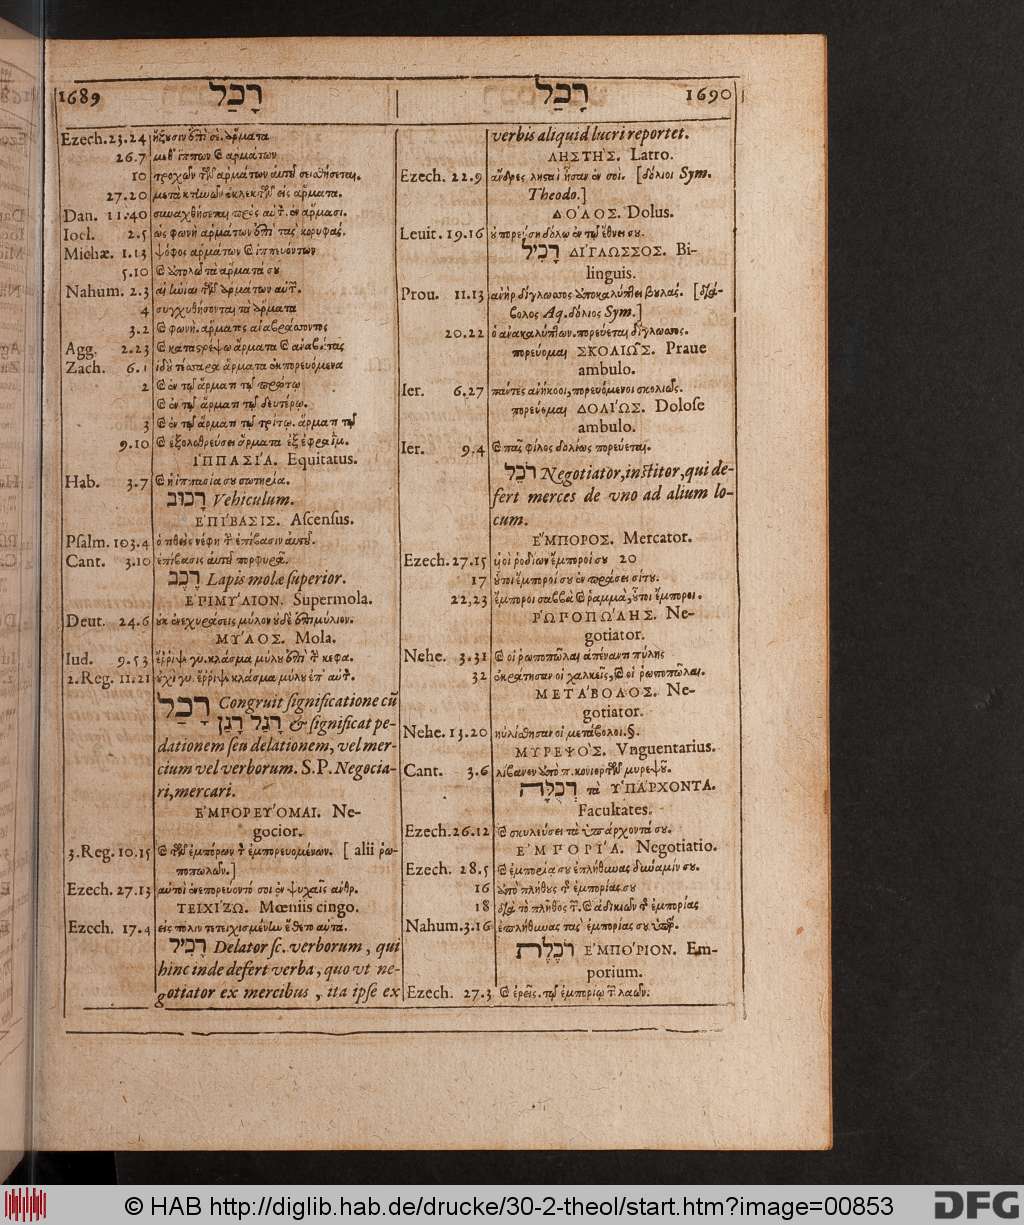 1689 רָכַל
רָכַל 1690
Ezech. 23.24 ἥξουσιν ἐπὶ σὲ. ἅρματα
26.7 μεθ' ἵππων καὶ ἁρμάτων
10 τροχῶν τῶν ἁρμάτων αὐτοῦ σεισθήσεται.
27.20 μετὰ κτηνῶν ἐκλεκτῶν εἰς ἅρματα.
Dan. 11.40 συναχθήσεται πρὸς αὐτ. ἐν ἅρμασι.
Ioel. 2.5 ὡς φωνὴ ἁρμάτων ἐπὶ τὰς κορυφάς.
Michæ. 1.13 ψόφος ἁρμάτων καὶ ἱππευόντων
5.10 καὶ ἀπολῶ τὰ ἅρματά σου
Nahum. 2.3 αἱ ἡνίαι τῶν ἁρμάτων αὐτ.
4 συγχυθήσονται τὰ ἅρματα
3.2 καὶ φωνὴ. ἅρματος ἀναβράσσοντος
Agg. 2.23 καὶ καταστρέψω ἅρματα καὶ ἀναβάτας
Zach. 6.1 ἰδοὺ τέσσαρα ἅρματα ἐκπορευόμενα
2 καὶ ἐν τῷ ἅρματι τῷ πρώτῳ
καὶ ἐν τῷ ἅρματι τῷ δευτέρῳ.
3 καὶ ἐν τῷ ἅρματι τῷ τρίτῳ. ἅρματι τῷ
9.10 καὶ ἐξολοθρεύσει ἅρματα ἐξ ἐφραΐμ.
ἹΠΠΑΣΊΑ. Equitatus.
Hab. 3.7 καὶ ἡ ἱππασία σου σωτηρία.
רָכוּב Vehiculum.
ἘΠΊΒΑΣΙΣ. Ascensus.
Psalm. 103.4 ὁ τιθεὶς νέφη τ. ἐπίβασιν αὐτοῦ.
Cant. 3.10 ἐπίβασις αὐτοῦ πορφυρᾶ.
רֶכֶב Lapis molæ superior.
ἘΠΙΜΎΛΙΟΝ. Supermola.
Deut. 24.6 οὐκ ἐνεχυράσεις μύλον οὐδὲ ἐπιμύλιον.
ΜΎΛΟΣ. Mola.
Iud. 9.53 ἔῤῥιψε γυ. κλάσμα μύλου ἐπὶ τ. κεφα.
2.Reg. 11.21 οὐχὶ γυ. ἔῤῥιψε κλάσμα μύλου ἐπ' αὐτ.
רָכַל Congruit significatione cũ
רָגַל רָגַן & significat pe-
dationem seu delationem, vel mer-
cium vel verborum. S.P. Negocia-
ri, mercari.
ἘΜΠΟΡΕΎΟΜΑΙ. Ne-
gocior.
3.Reg. 10.15 καὶ τῶν ἐμπόρων τ. ἐμπορευομένων. [ alii ῥω-
ποπωλῶν.]
Ezech. 27.13 αὐτοὶ ἐνεπορεύοντό σοι ἐν ψυχαῖς ἀνθρ.
ΤΕΙΧΊΖΩ. Mœniis cingo.
Ezech. 17.4 εἰς πόλιν τετειχισμένην ἔθετο αὐτά.
רָכִיל Delator sc. verborum, qui
hinc inde defert verba, quo vt ne-
gotiator ex mercibus, ita ipse ex
verbis aliquid lucri reportet.
ΛΗΣΤΉΣ. Latro.
Ezech. 22.9 ἄνδρες λῃσταὶ ἦσαν ἐν σοί. [δόλιοι Sym.
Theodo.]
ΔΌΛΟΣ. Dolus.
Leuit. 19.16 οὐ πορεύσῃ δόλῳ ἐν τῷ ἔθνει σου.
רָכִיל ΔΊΓΛΩΣΣΟΣ. Bi-
linguis.
Prou. 11.13 ἀνὴρ δίγλωσσος ἀποκαλύπτει βουλάς. [διά-
βολος Aq. δόλιος Sym.]
20.22 ὁ ἀνακαλύπτων. πορεύεται δίγλωσσος.
πορεύομαι ΣΚΟΛΙΩ͂Σ. Praue
ambulo.
Ier. 6.27 πάντες ἀνήκοοι, πορευόμενοι σκολιῶς.
πορεύομαι ΔΟΛΊΩΣ. Dolose
ambulo.
Ier. 9.4 καὶ πᾶς φίλος δολίως πορεύεται.
רֹכֵל Negotiator, institor, qui de-
fert merces de vno ad alium lo-
cum.
ἜΜΠΟΡΟΣ. Mercator.
Ezech. 27.15 υἱοὶ ῥοδίων ἔμποροί σου 20
17 οὗτοι ἔμποροί σου ἐν πράσει σίτου.
22,23 ἔμποροι σαββὰ καὶ ῥαμμὰ, οὗτοι ἔμποροι.
ῬΩΠΟΠΏΛΗΣ. Ne-
gotiator.
Nehe. 3.31 καὶ οἱ ῥωποπῶλαι ἀπέναντι πύλης
32 ἐκράτησαν οἱ χαλκεῖς, καὶ οἱ ῥωποπῶλαι.
ΜΕΤΆΒΟΛΟΣ. Ne-
gotiator.
Nehe. 13.20 ηὐλίσθησαν οἱ μετάβολοι. §.
ΜΥΡΕΨῸΣ. Vnguentarius.
Cant. 3.6 λίβανον ἀπὸ π. κονιορτῶν μυρεψοῦ.
רְכֻלָּה τὰ ὙΠΆΡΧΟΝΤΑ.
Facultates.
Ezech. 26.12 καὶ σκυλεύσει τὰ ὑπάρχοντά σου.
ἘΜΠΟΡΊΑ. Negotiatio.
Ezech. 28.5 καὶ ἐμπορίᾳ σου ἐπλήθυνας δύναμίν σου.
16 ἀπὸ πλήθους τ. ἐμπορίας σου
18 διὰ τὸ πλῆθος τ. καὶ ἀδικιῶν τ. ἐμπορίας
Nahum. 3.16 ἐπλήθυνας τὰς ἐμπορίας σου ὑπὲρ.
רֹכֶלֶת ἘΜΠΌΡΙΟΝ. Em-
porium.
Ezech. 27.3 καὶ ἐρεῖς. τῷ ἐμπορίῳ τ. λαῶν.
© HAB http://diglib.hab.de/drucke/30-2-theol/start.htm?image=00853
DFG